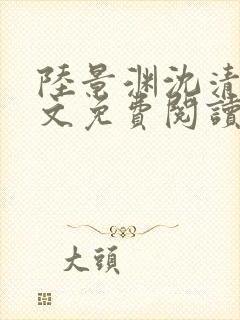 陸景渊沈清
文免費閱讀
大頭